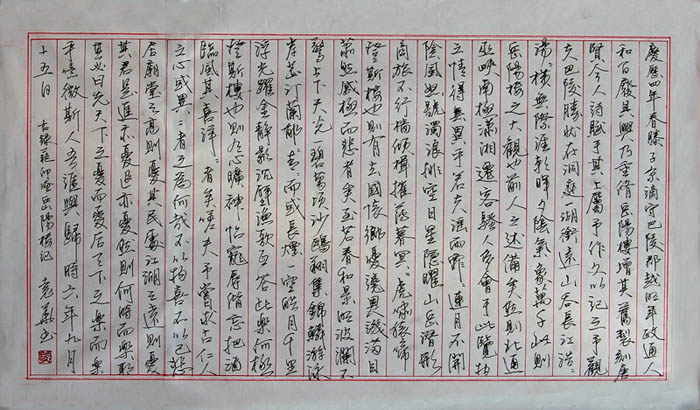 慶曆四年春滕子京謫守巴陵郡越明年政通人
和百廢具興乃重修岳陽樓增其舊製刻唐
賢今人詩賦于其上屬予作文以記之予觀
夫巴陵勝狀在洞庭一湖銜遠山吞長江浩
湯〻橫無際涯朝暉夕陰氣象萬千此則
岳陽樓之大觀也前人之述備矣然則北通
巫峽南極瀟湘遷客騷人多會于此覽物
之情得無異乎若夫淫雨霏〻連月不開
陰風怒號濁浪排空日星隱曜山岳潛形
商旅不行檣傾楫摧薄暮冥〻虎嘯猿啼
登斯樓也則有去國懷鄉憂讒畏譏滿目
蕭然感極而悲者矣至若春和景明波瀾不
驚上下天光一碧萬頃沙鷗翔集錦鱗游泳
岸芷汀蘭郁〻青〻而或長煙一空皓月千里
浮光躍金靜影沉璧漁歌互答此樂何極
登斯樓也則有心曠神怡寵辱偕忘把酒
臨風其喜洋〻者矣嗟夫予嘗求古仁人
之心或異二者之為何哉不以物喜不以己悲
居廟堂之高則憂其民處江湖之遠則憂
其君是進亦憂退亦憂然則何時而樂耶
其必曰先天下之憂而憂后天下之樂而樂
乎噫微斯人吾誰與歸時六年九月
十五日 范仲淹岳陽樓記 袁 書